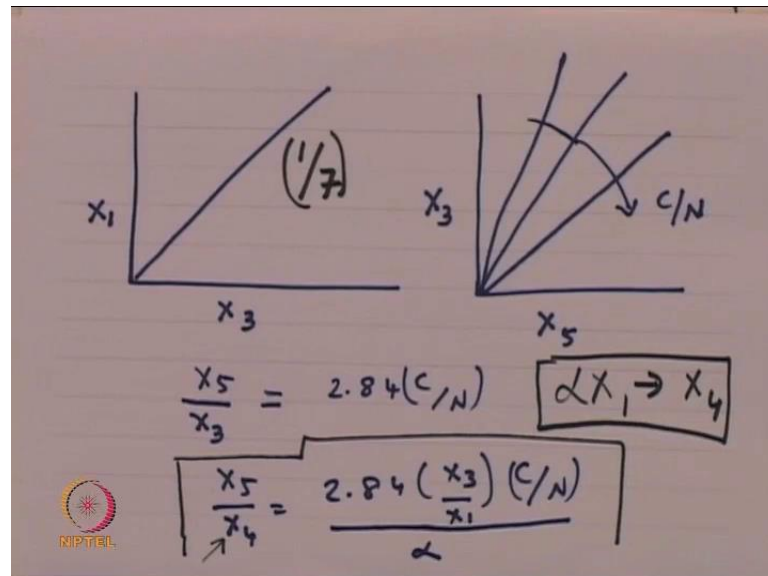 X₁
(1/7)
X₃
X₃
C/N
X₅
X₅/X₃ = 2.84 (C/N)
αX₁ → X₄
X₅/X₄ = 2.84 (X₃/X₁) (C/N) / α
NPTEL